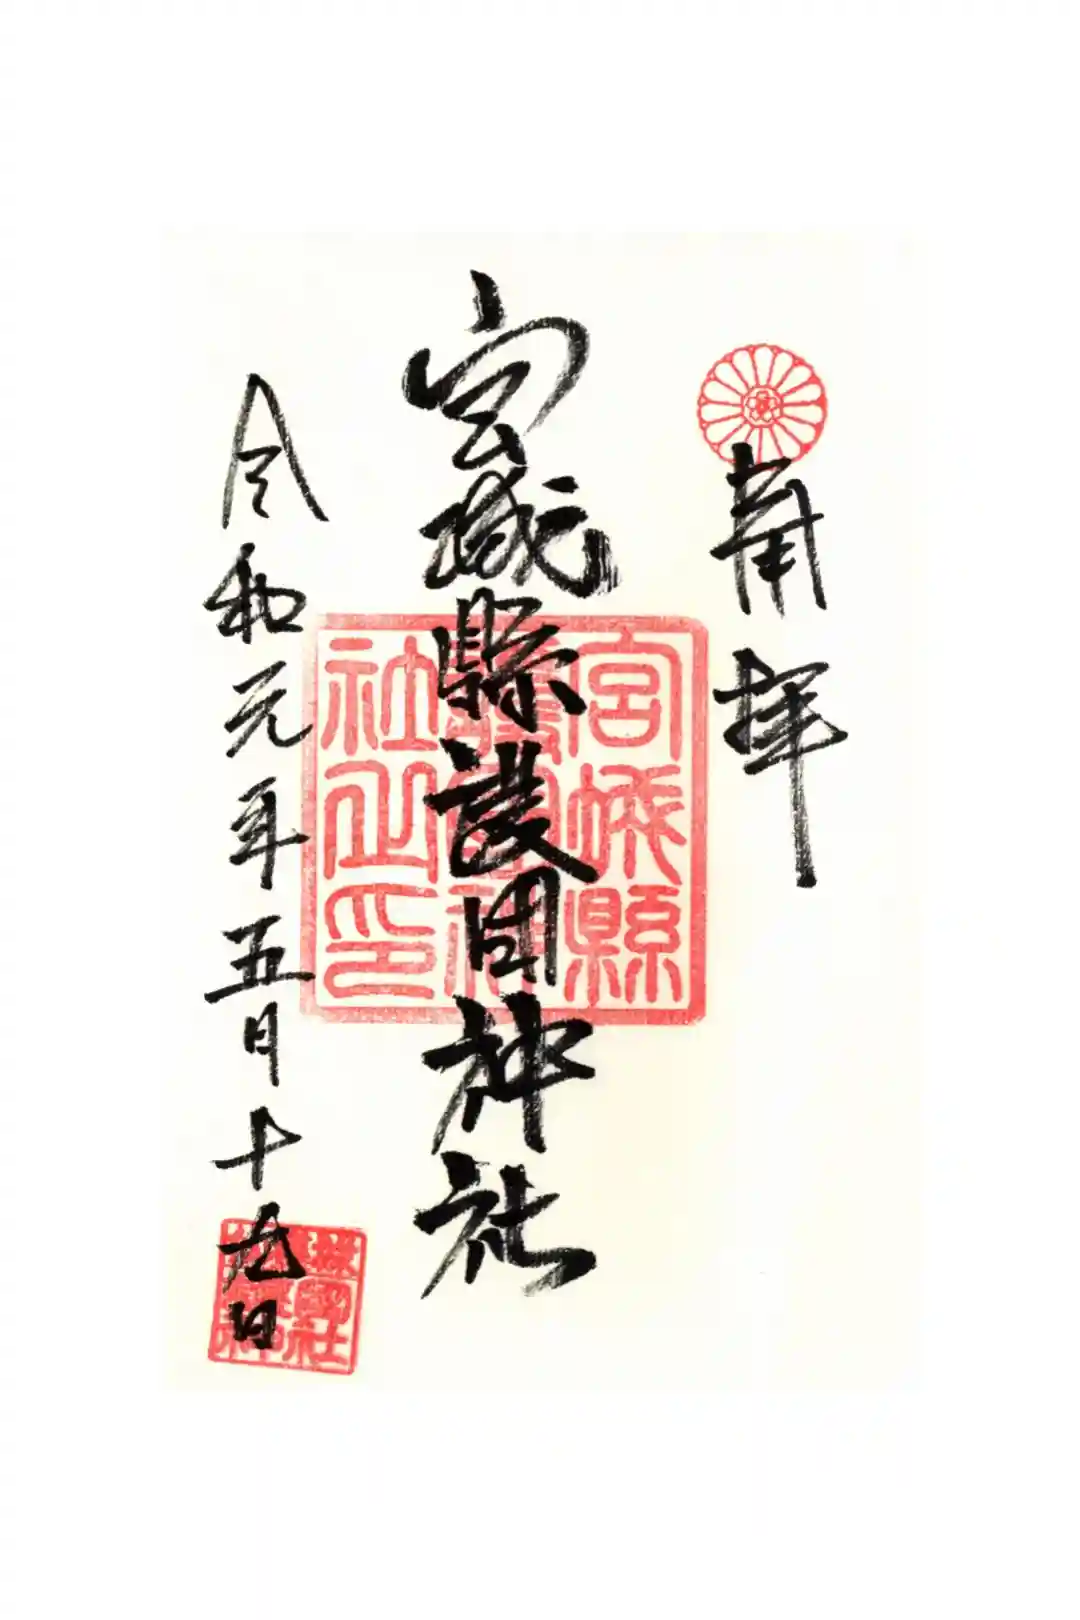 奉拝
宮城縣護国神社
令和元年五月十九日
宮城縣護國神社之印